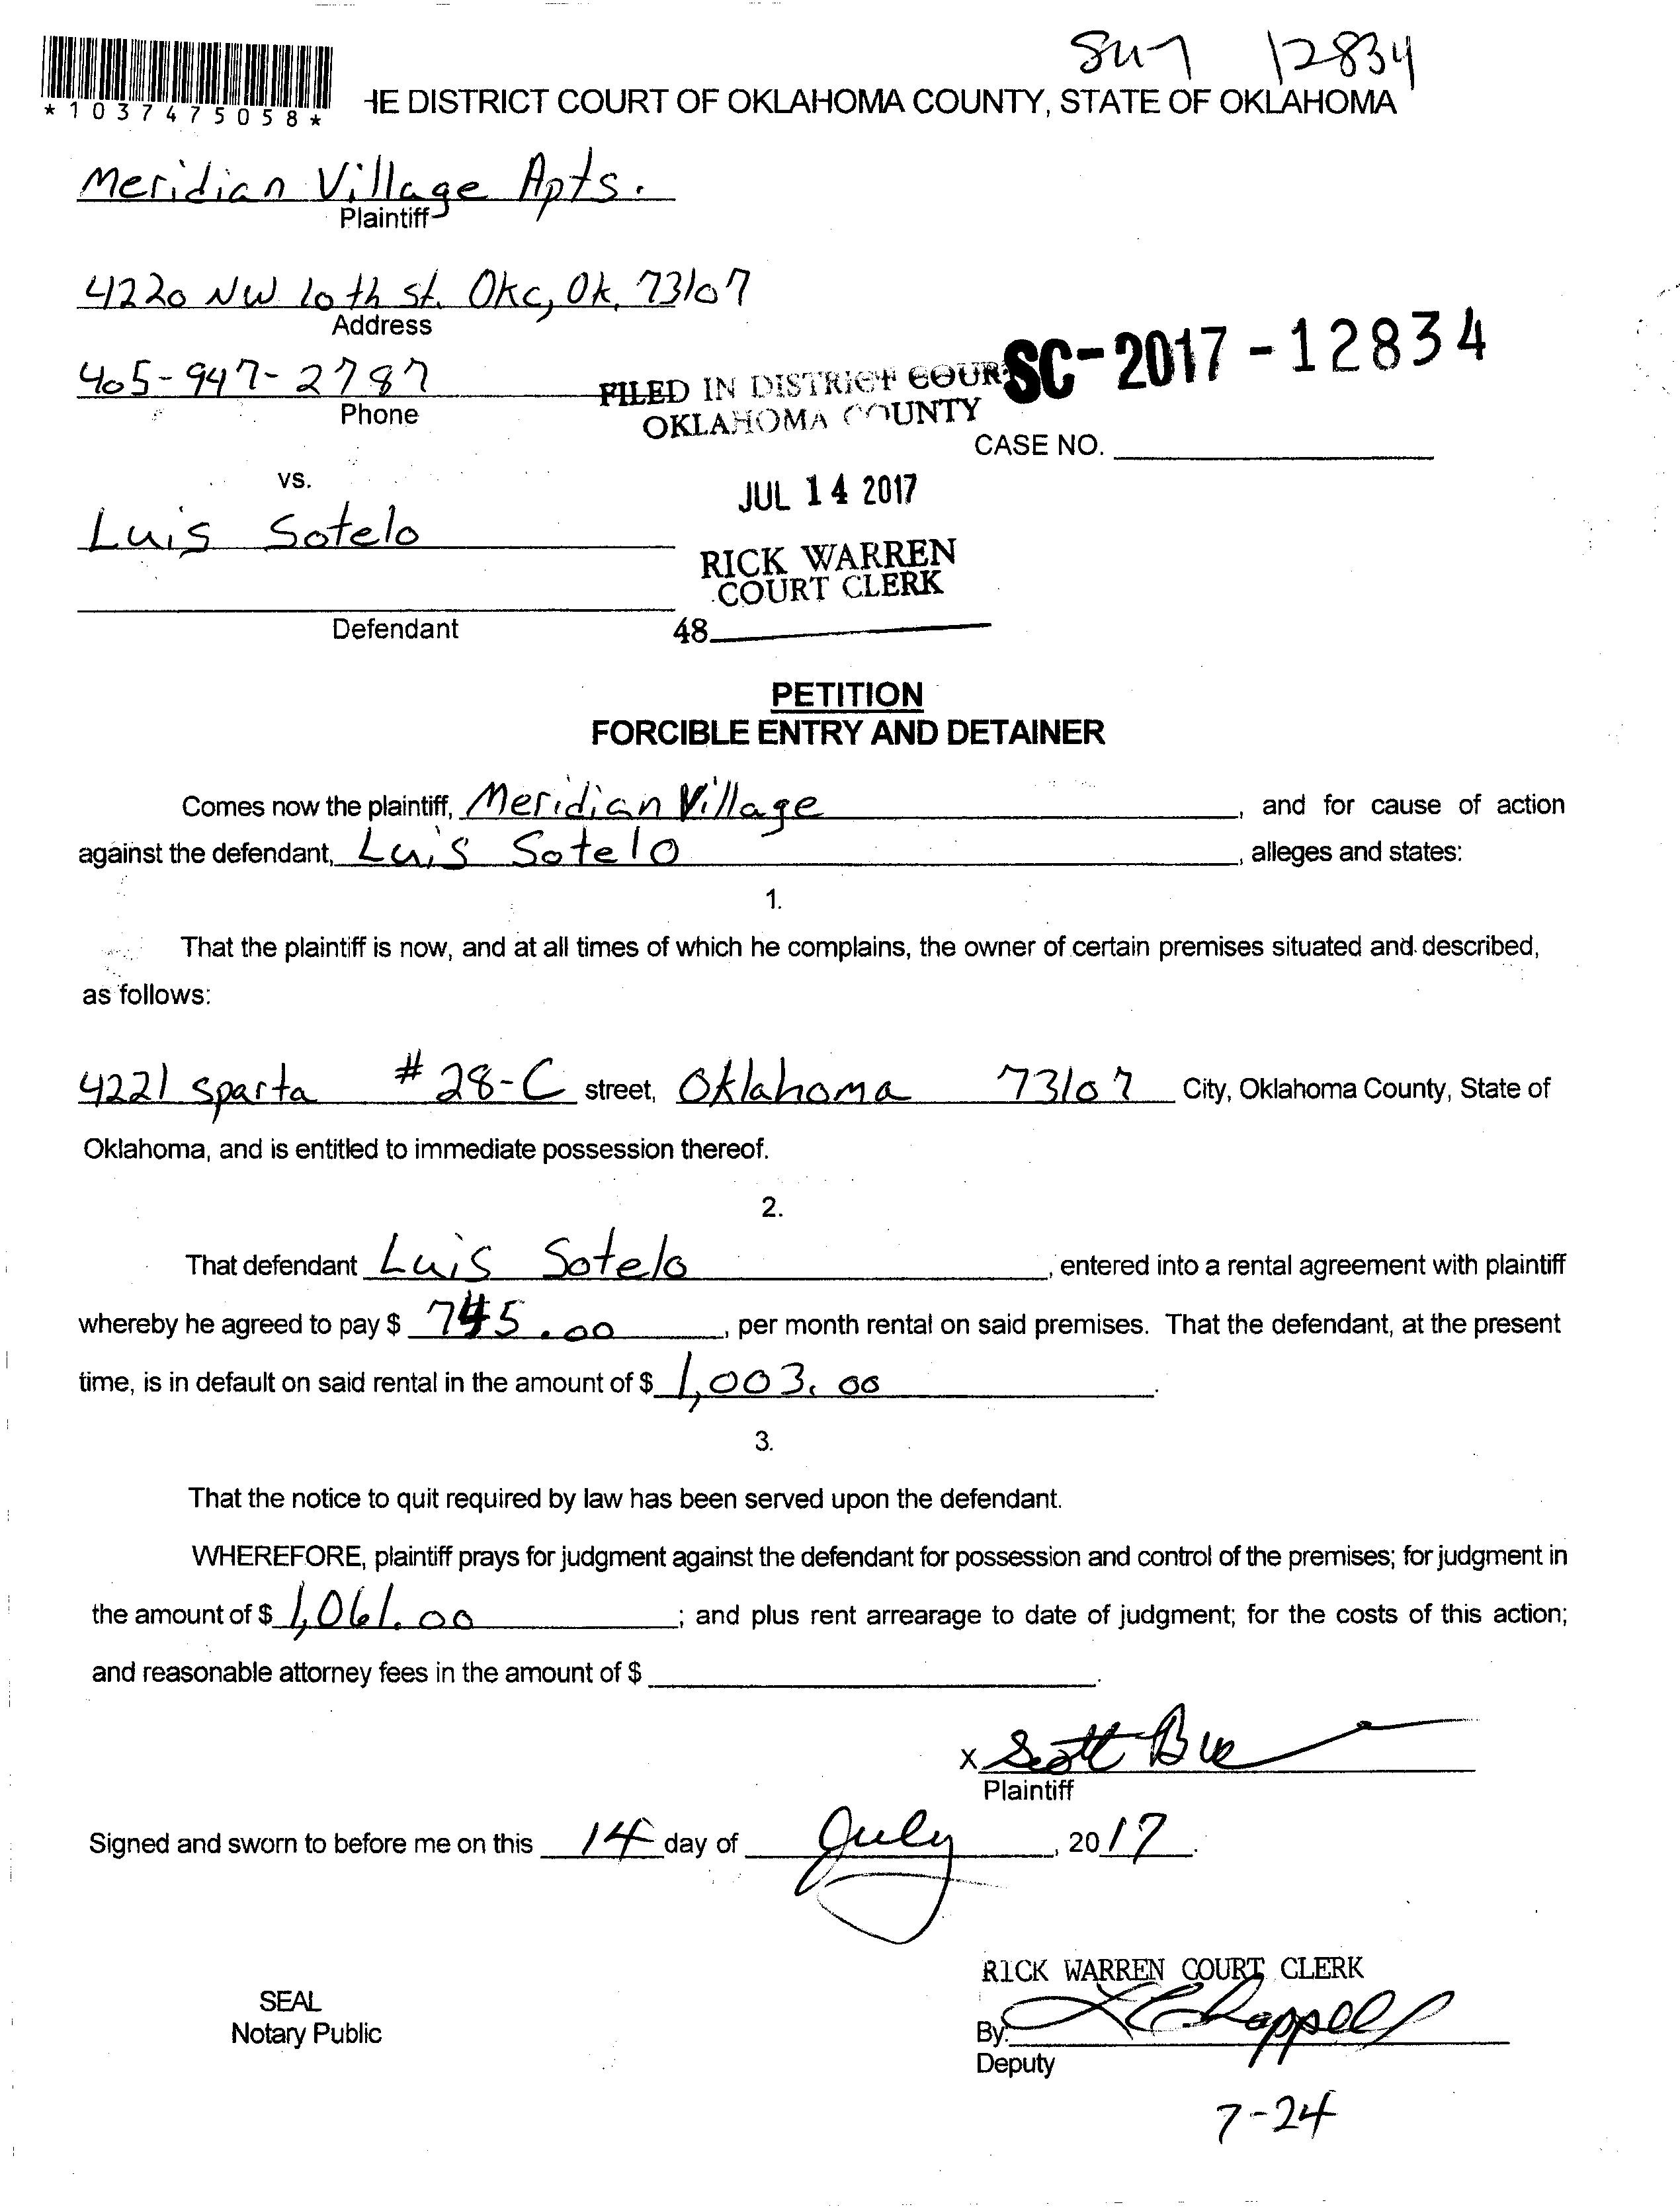 12834
*1037475058*
HE DISTRICT COURT OF OKLAHOMA COUNTY, STATE OF OKLAHOMA
Meridian Village Apts.
Plaintiff
4220 NW 10th st. Okc, Ok, 73107
Address
405-947-2787
Phone
FILED IN DISTRICT COUR
OKLAHOMA COUNTY
SC-2017-12834
CASE NO.
vs.
JUL 14 2017
Luis Sotelo
RICK WARREN
COURT CLERK
Defendant
48
PETITION
FORCIBLE ENTRY AND DETAINER
Comes now the plaintiff, Meridian Village, and for cause of action
against the defendant, Luis Sotelo, alleges and states:
1.
That the plaintiff is now, and at all times of which he complains, the owner of certain premises situated and described,
as follows:
4221 sparta #28-C street, Oklahoma 73107 City, Oklahoma County, State of
Oklahoma, and is entitled to immediate possession thereof.
2.
That defendant Luis Sotelo, entered into a rental agreement with plaintiff
whereby he agreed to pay $ 745.00, per month rental on said premises. That the defendant, at the present
time, is in default on said rental in the amount of $ 1,003.00.
3.
That the notice to quit required by law has been served upon the defendant.
WHEREFORE, plaintiff prays for judgment against the defendant for possession and control of the premises; for judgment in
the amount of $ 1,061.00; and plus rent arrearage to date of judgment; for the costs of this action;
and reasonable attorney fees in the amount of $ .
X Scott
Plaintiff
Signed and sworn to before me on this 14 day of July, 2017.
RICK WARREN COURT CLERK
SEAL
Notary Public
By: Chappell
Deputy
7-24